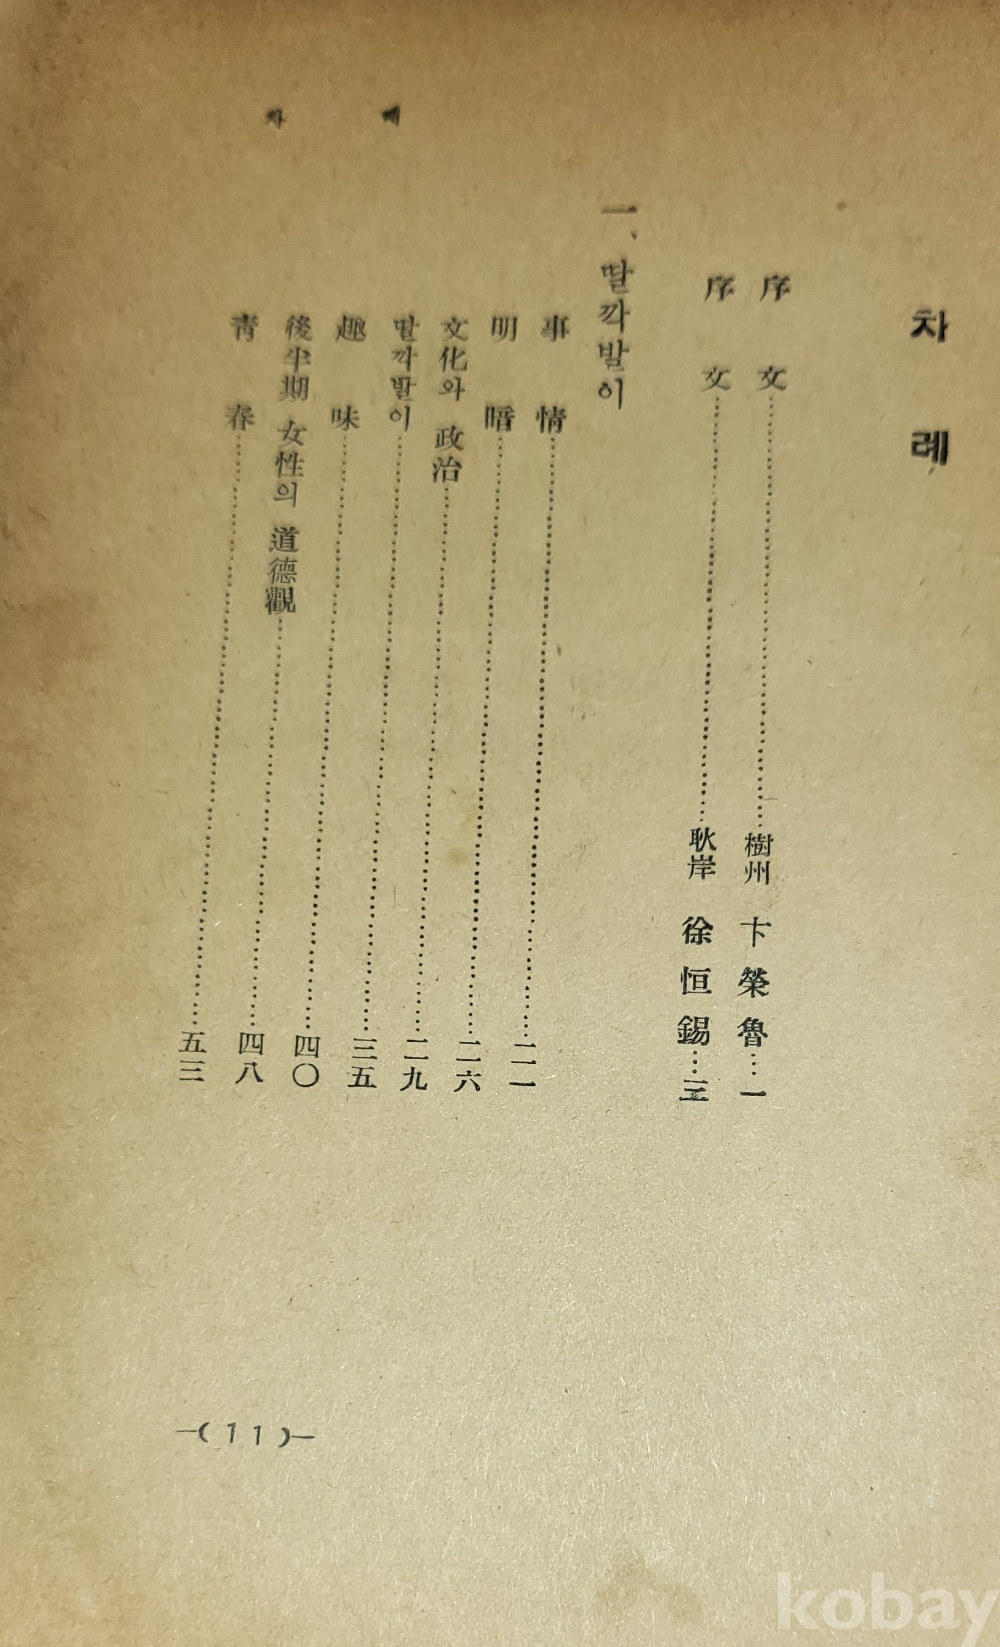 차 례
차 례
序 文………樹州 卞榮魯…一
序 文………耿岸 徐恒錫…三
一、딸깍발이
事 情………二一
明 暗………二六
文化와 政治………二九
딸깍발이………三五
趣 味………四〇
後半期 女性의 道德觀………四八
靑 春………五三
—( 11 )—
kobay